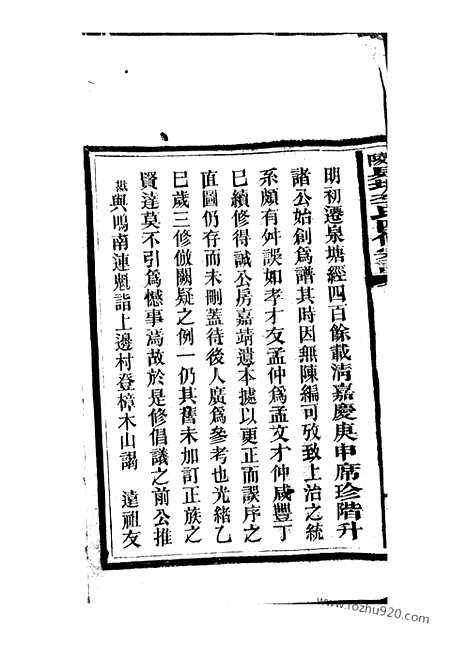 明初遷泉塘經四百餘載清嘉慶庚申席珍階升
諸公始創爲譜其時因無陳編可攷致上治之統
系頗有舛誤如孝才友孟仲爲孟文才仲咸豐丁
巳續修得誠公房嘉靖遺本據以更正而誤序之
直圖仍存而未刪蓋待後人廣爲參考也光緒乙
巳歲三修倣闕疑之例一仍其舊未加訂正族之
賢達莫不引爲憾事焉故於是修倡議之前公推
與鳴南連魁詣上邊村登樟木山謁 遠祖友
www.rozhu920.com